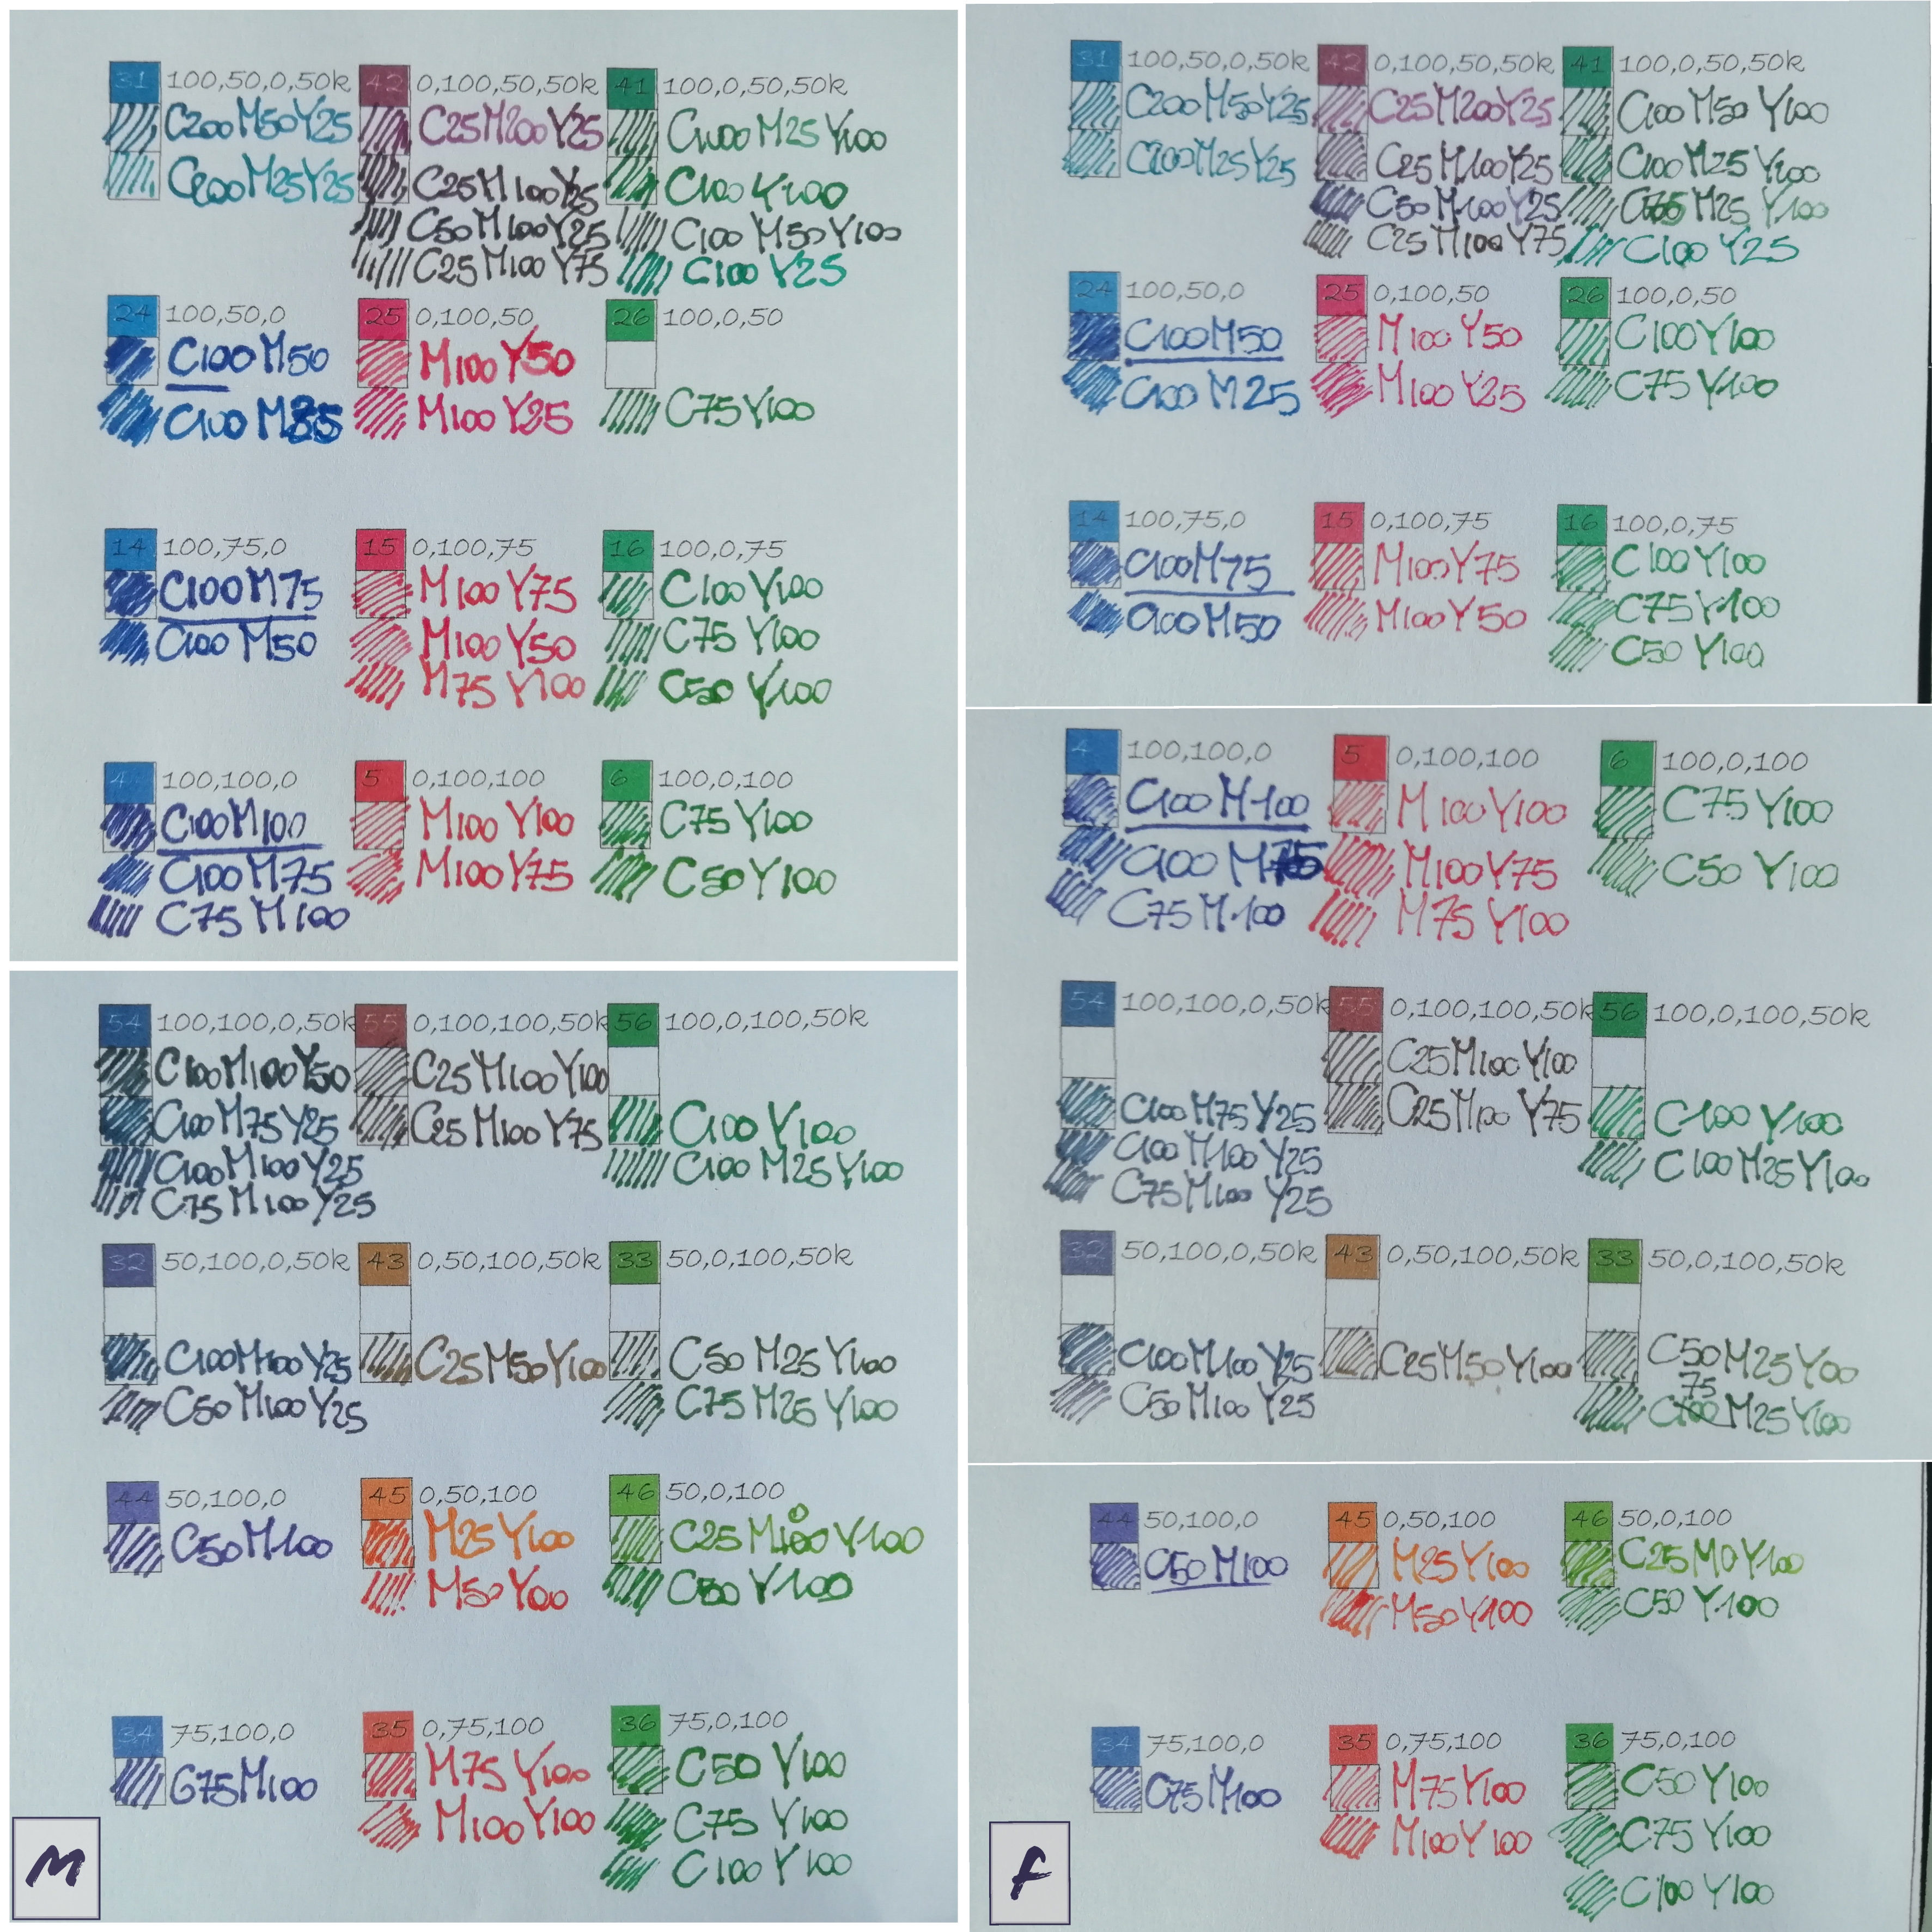 31 100,50,0,50k
C200M50Y25
C200M25Y25
42 0,100,50,50k
C25M200Y25
C25M100Y25
C50M100Y25
C25M100Y75
41 100,0,50,50k
C100M25Y100
C100Y100
C100M50Y100
C100Y25
24 100,50,0
C100M50
C100M25
25 0,100,50
M100Y50
M100Y25
26 100,0,50
C75Y100
14 100,75,0
C100M75
C100M50
15 0,100,75
M100Y75
M100Y50
M75Y100
16 100,0,75
C100Y100
C75Y100
C50Y100
4 100,100,0
C100M100
C100M75
C75M100
5 0,100,100
M100Y100
M100Y75
6 100,0,100
C75Y100
C50Y100
54 100,100,0,50k
C100M100Y50
C100M75Y25
C100M100Y25
C75M100Y25
55 0,100,100,50k
C25M100Y100
C25M100Y75
56 100,0,100,50k
C100Y100
C100M25Y100
32 50,100,0,50k
C100M100Y25
C50M100Y25
43 0,50,100,50k
C25M50Y100
33 50,0,100,50k
C50M25Y100
C75M25Y100
44 50,100,0
C50M100
45 0,50,100
M25Y100
M50Y100
46 50,0,100
C25M0Y100
C50Y100
34 75,100,0
C75M100
35 0,75,100
M75Y100
M100Y100
36 75,0,100
C50Y100
C75Y100
C100Y100
M
31 100,50,0,50k
C200M50Y25
C200M25Y25
42 0,100,50,50k
C25M200Y25
C25M100Y25
C50M100Y25
C25M100Y75
41 100,0,50,50k
C100M50Y100
C100M25Y100
C75M25Y100
C100Y25
24 100,50,0
C100M50
C100M25
25 0,100,50
M100Y50
M100Y25
26 100,0,50
C100Y100
C75Y100
14 100,75,0
C100M75
C100M50
15 0,100,75
M100Y75
M100Y50
16 100,0,75
C100Y100
C75Y100
C50Y100
4 100,100,0
C100M100
C100M75
C75M100
5 0,100,100
M100Y100
M100Y75
M75Y100
6 100,0,100
C75Y100
C50Y100
54 100,100,0,50k
C100M75Y25
C100M100Y25
C75M100Y25
55 0,100,100,50k
C25M100Y100
C25M100Y75
56 100,0,100,50k
C100Y100
C100M25Y100
32 50,100,0,50k
C100M100Y25
C50M100Y25
43 0,50,100,50k
C25M50Y100
33 50,0,100,50k
C50M25Y100
75
C100M25Y100
44 50,100,0
C50M100
45 0,50,100
M25Y100
M50Y100
46 50,0,100
C25M0Y100
C50Y100
34 75,100,0
C75M100
35 0,75,100
M75Y100
M100Y100
36 75,0,100
C50Y100
C75Y100
C100Y100
f